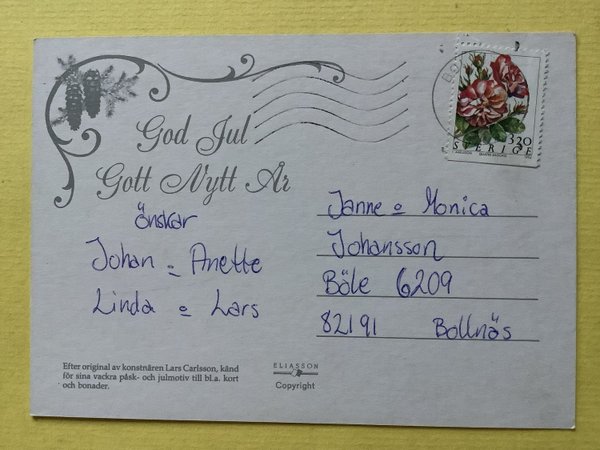 God Jul
Gott Nytt År
önskar
Johan o Anette
Linda o Lars
Janne o Monica
Johansson
Böle 6209
82191 Bollnäs
Efter original av konstnären Lars Carlsson, känd
för sina vackra påsk- och julmotiv till bl.a. kort
och bonader.
ELIASSON
Copyright
3.20
SVERIGE